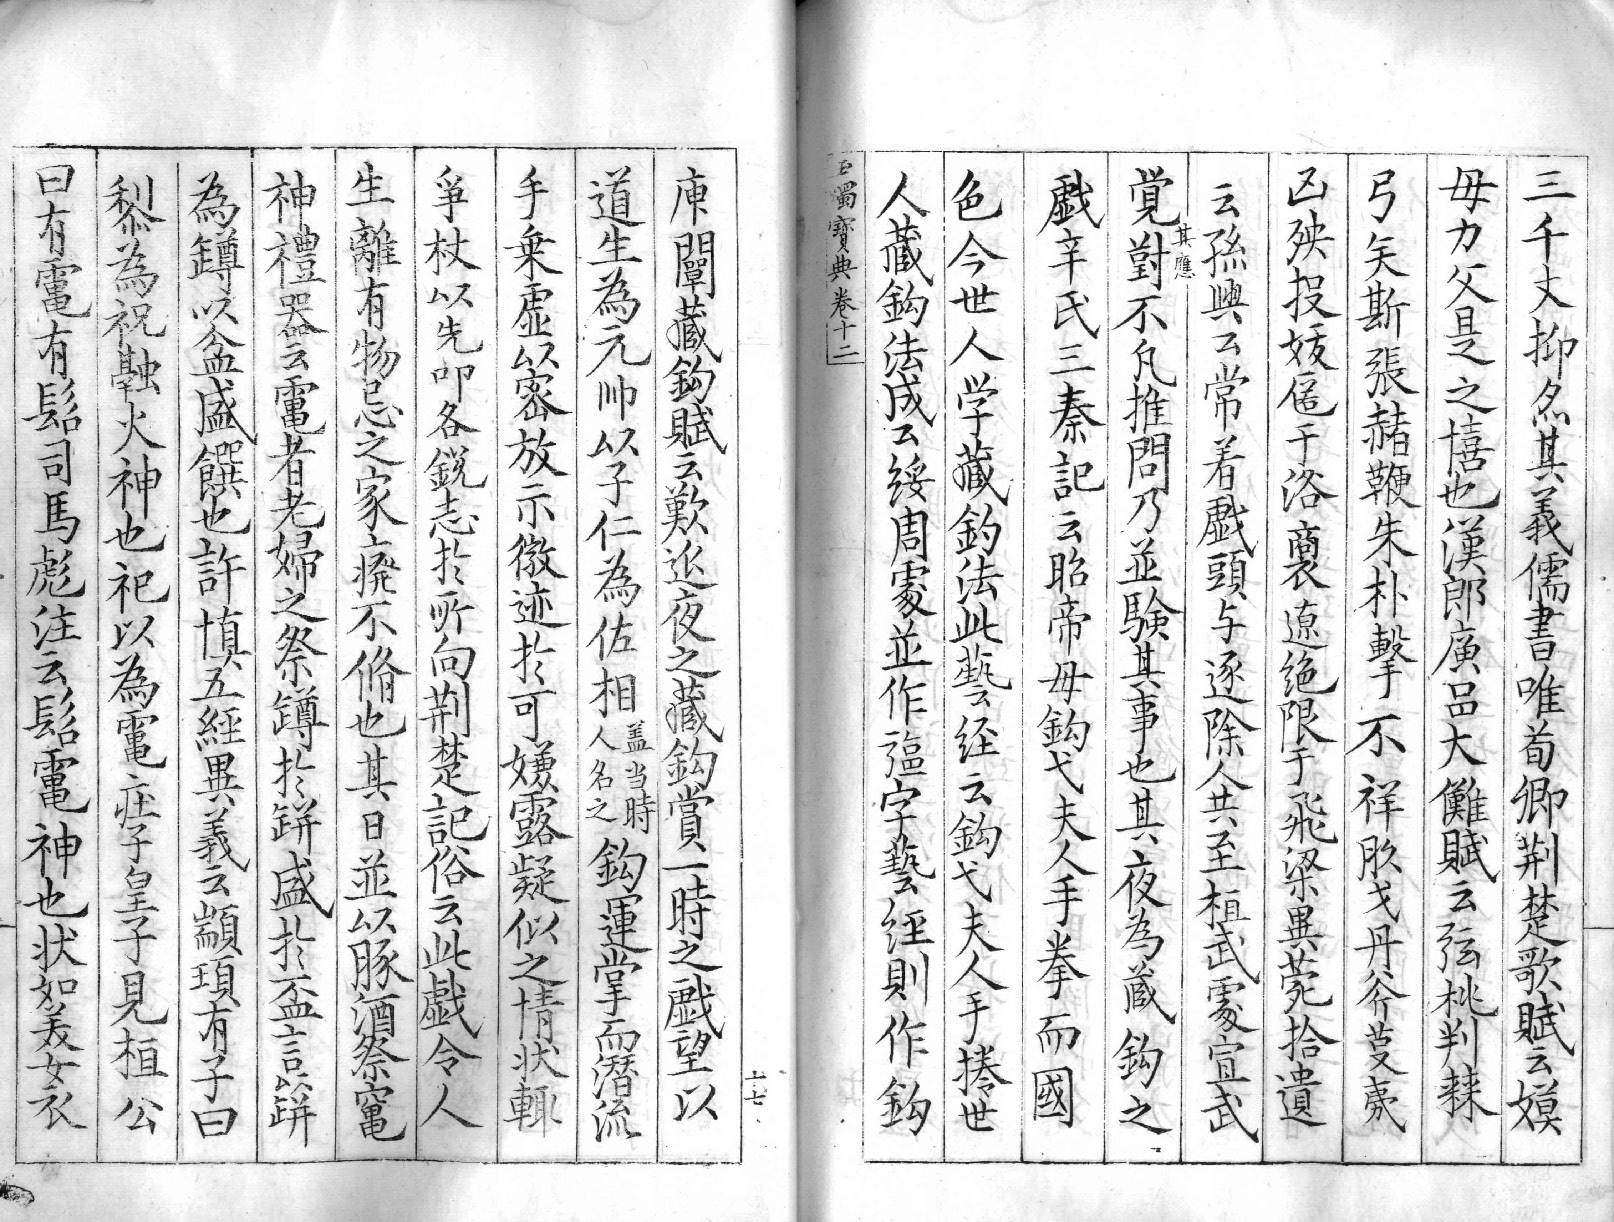 三千丈抑名其義儒書唯荀卿荆楚歌賦云嫫
母力父是之憘也漢郎廣品大儺賦云弦桃判棘
弓矢斯張赭鞭朱朴擊不祥肜戈丹斧芟夷
凶殃投妖匿于洛裔遼絶限于飛梁異苑拾遺
云孫興公常着戯頭与逐除人共至桓武處宣武
覚其應對不凡推問乃並驗其事也其夜為蔵鈎之
戯辛氏三秦記云昭帝母鈎弋夫人手拳而國
色今世人学藏釣法此藝経云鈎弋夫人手捲世
人藏鈎法成公綏周處並作彄字藝経則作鈎
玉燭寶典卷十二
庾闡藏鈎賦云歎近夜之藏鈎賞一時之戯望以
道生為元帅以子仁為佐相盖当時人名之鈎運掌而潜流
手乗虚以密放示微迹於可嫌露疑似之情状輙
争材以先叩各銳志於所向荆楚記俗云此戯令人
生離有物忌之家廢不脩也其日並以豚酒祭竈
神禮器云竃者老婦之祭罇於缾盛於盃言缾
為罇以盆盛饌也許慎五經異義云顓頊有子曰
黎為祝融火神也祀以為竃庄子皇子見桓公
曰有竃有髻司馬彪注云髻竃神也状如美女衣
十七